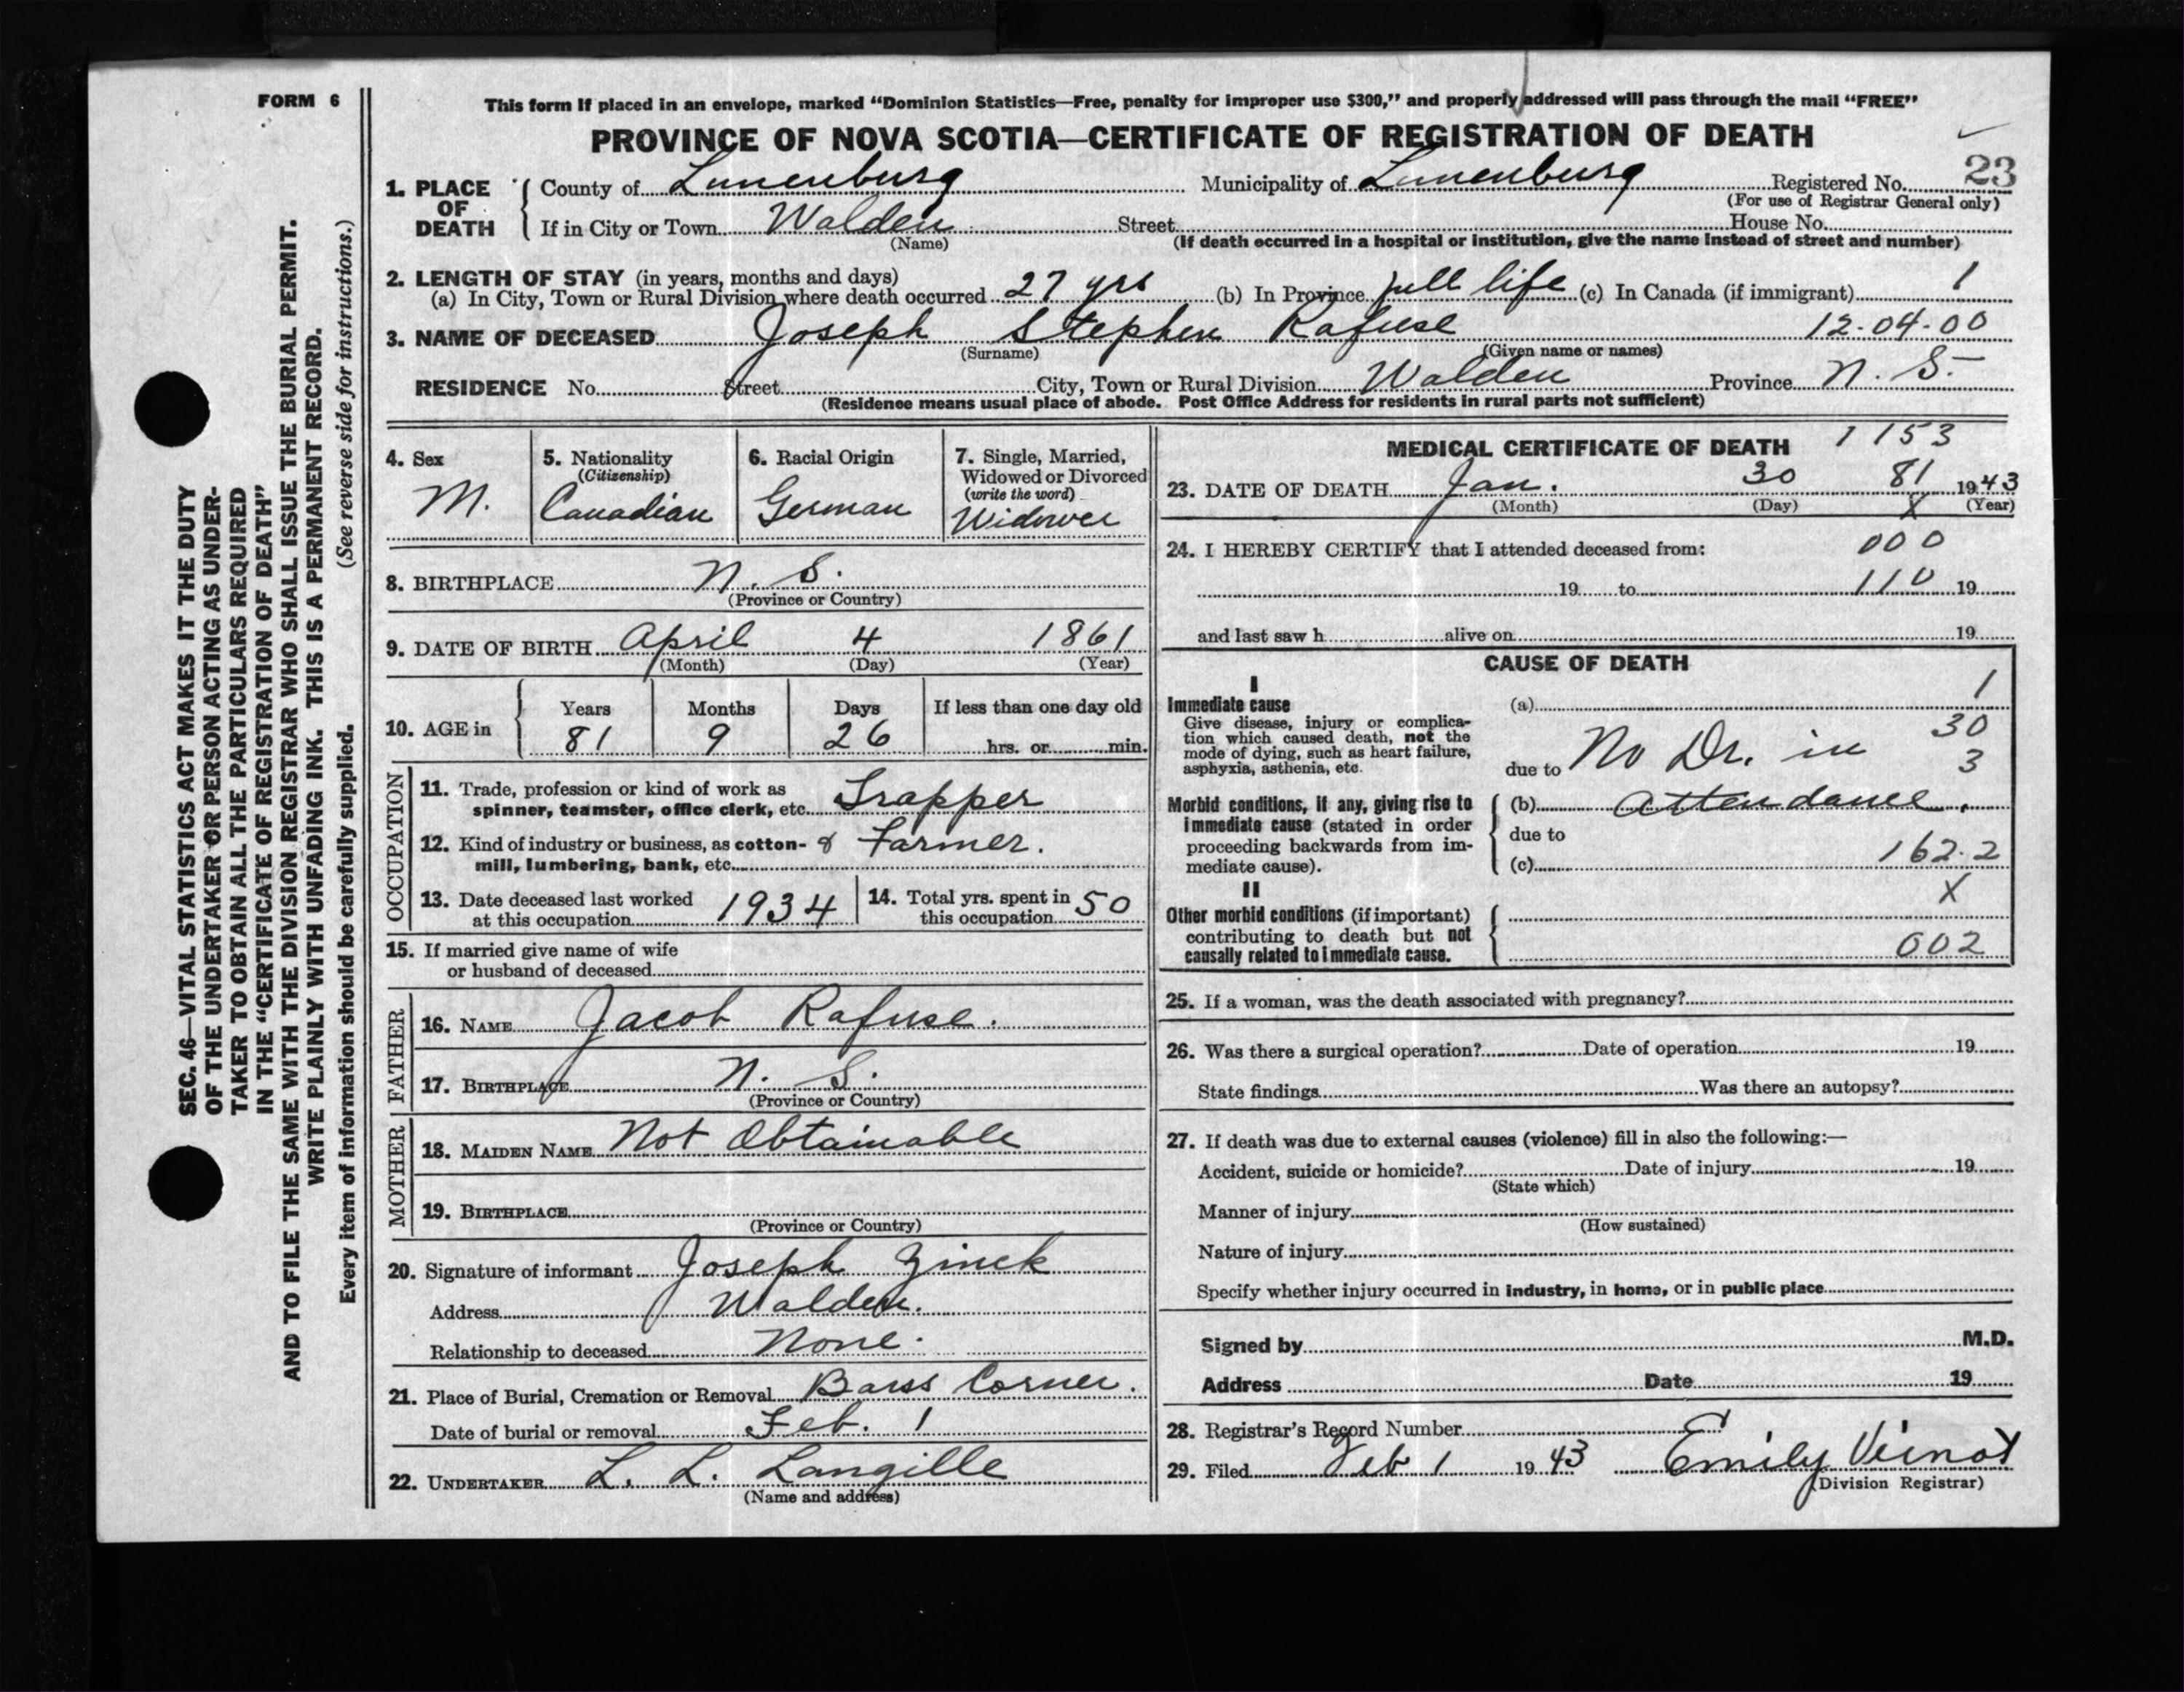 FORM 6
This form if placed in an envelope, marked “Dominion Statistics—Free, penalty for improper use $300,” and properly addressed will pass through the mail “FREE”
PROVINCE OF NOVA SCOTIA—CERTIFICATE OF REGISTRATION OF DEATH
1. PLACE OF DEATH County of Lunenburg Municipality of Lunenburg Registered No. 23
(For use of Registrar General only)
If in City or Town Walden Street House No.
(Name) (If death occurred in a hospital or institution, give the name instead of street and number)
2. LENGTH OF STAY (in years, months and days)
(a) In City, Town or Rural Division where death occurred 27 yrs (b) In Province full life (c) In Canada (if immigrant) 1
3. NAME OF DECEASED Joseph Stephen Rafuse 12-04-00
(Surname) (Given name or names)
RESIDENCE No. Street City, Town or Rural Division Walden Province N. S.
(Residence means usual place of abode. Post Office Address for residents in rural parts not sufficient)
4. Sex
M.
5. Nationality
(Citizenship)
Canadian
6. Racial Origin
German
7. Single, Married,
Widowed or Divorced
(write the word)
Widower
8. BIRTHPLACE N. S.
(Province or Country)
9. DATE OF BIRTH April 4 1861
(Month) (Day) (Year)
10. AGE in Years Months Days If less than one day old
81 9 26 hrs. or min.
OCCUPATION
11. Trade, profession or kind of work as
spinner, teamster, office clerk, etc. Trapper
12. Kind of industry or business, as cotton- & Farmer.
mill, lumbering, bank, etc.
13. Date deceased last worked
at this occupation 1934
14. Total yrs. spent in
this occupation 50
15. If married give name of wife
or husband of deceased
FATHER
16. NAME Jacob Rafuse.
17. BIRTHPLACE N. S.
(Province or Country)
MOTHER
18. MAIDEN NAME Not Obtainable
19. BIRTHPLACE
(Province or Country)
20. Signature of informant Joseph Zinck
Address Walden.
Relationship to deceased None.
21. Place of Burial, Cremation or Removal Barss Corner.
Date of burial or removal Feb. 1
22. UNDERTAKER L. L. Langille
(Name and address)
MEDICAL CERTIFICATE OF DEATH 1153
23. DATE OF DEATH Jan. 30 81 1943
(Month) (Day) X (Year)
24. I HEREBY CERTIFY that I attended deceased from: 000
19 to 110 19
and last saw h alive on 19
CAUSE OF DEATH
I
Immediate cause (a) 1
Give disease, injury or complica-
tion which caused death, not the
mode of dying, such as heart failure,
asphyxia, asthenia, etc.
due to No Dr. in 30
3
Morbid conditions, if any, giving rise to
immediate cause (stated in order
proceeding backwards from im-
mediate cause).
(b) attendance.
due to
(c) 162.2
II X
Other morbid conditions (if important)
contributing to death but not
causally related to immediate cause. 002
25. If a woman, was the death associated with pregnancy?
26. Was there a surgical operation? Date of operation 19
State findings Was there an autopsy?
27. If death was due to external causes (violence) fill in also the following:—
Accident, suicide or homicide? Date of injury 19
(State which)
Manner of injury
(How sustained)
Nature of injury
Specify whether injury occurred in industry, in home, or in public place
Signed by M.D.
Address Date 19
28. Registrar's Record Number
29. Filed Feb 1 1943 Emily Veinot
(Division Registrar)
SEC. 46—VITAL STATISTICS ACT MAKES IT THE DUTY
OF THE UNDERTAKER OR PERSON ACTING AS UNDER-
TAKER TO OBTAIN ALL THE PARTICULARS REQUIRED
IN THE “CERTIFICATE OF REGISTRATION OF DEATH”
AND TO FILE THE SAME WITH THE DIVISION REGISTRAR WHO SHALL ISSUE THE BURIAL PERMIT.
WRITE PLAINLY WITH UNFADING INK. THIS IS A PERMANENT RECORD.
Every item of information should be carefully supplied. (See reverse side for instructions.)